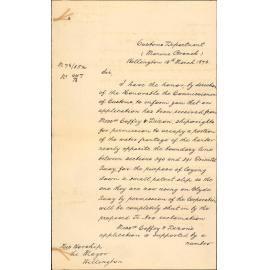 Customs Department
(Marine Branch)
Wellington 16th March 1878
Sir
I have the honor by direction
of the Honorable the Commissioner
of Customs to inform you that an
application has been received from
Messrs Coffey & Dixon, shipwrights
for permission to occupy a portion
of the water frontage of the harbour
nearly opposite the boundary line
between sections 390 and 391 Oriental
Bay for the purpose of laying
down a small patent slip as the
one they are now using on Clyde
Quay by permission of the Corporation
will be completely shut in by the
proposed Te Aro reclamation
Messrs Coffey & Dixon's
application is supported by a
number
His Worship
The Mayor
Wellington